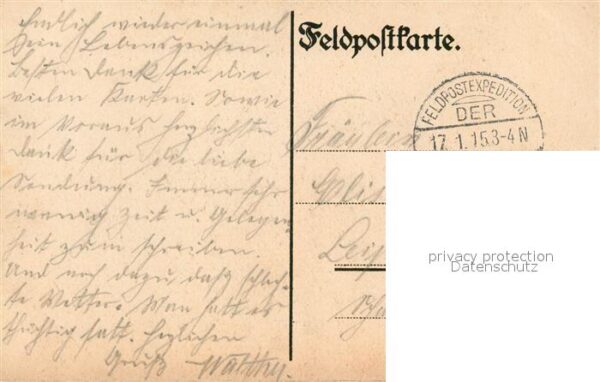 Endlich wieder einmal
Dein Lebenszeichen.
Besten Dank für die
vielen Karten. Sowie
im Voraus herzlichsten
Dank für die liebe
Sendung. Immer sehr
wenig Zeit u. Gelegen
heit zum schreiben.
Und noch dazu das schlech-
te Wetter. Man hatt es
tüchtig satt. Herzlichen
Gruß Walther.
Feldpostkarte.
FELDPOSTEXPEDITION
DER
17.1.15.3-4N
Fräulein
Leip
privacy protection
Datenschutz